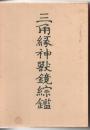 三角縁神獣鏡綜鑑